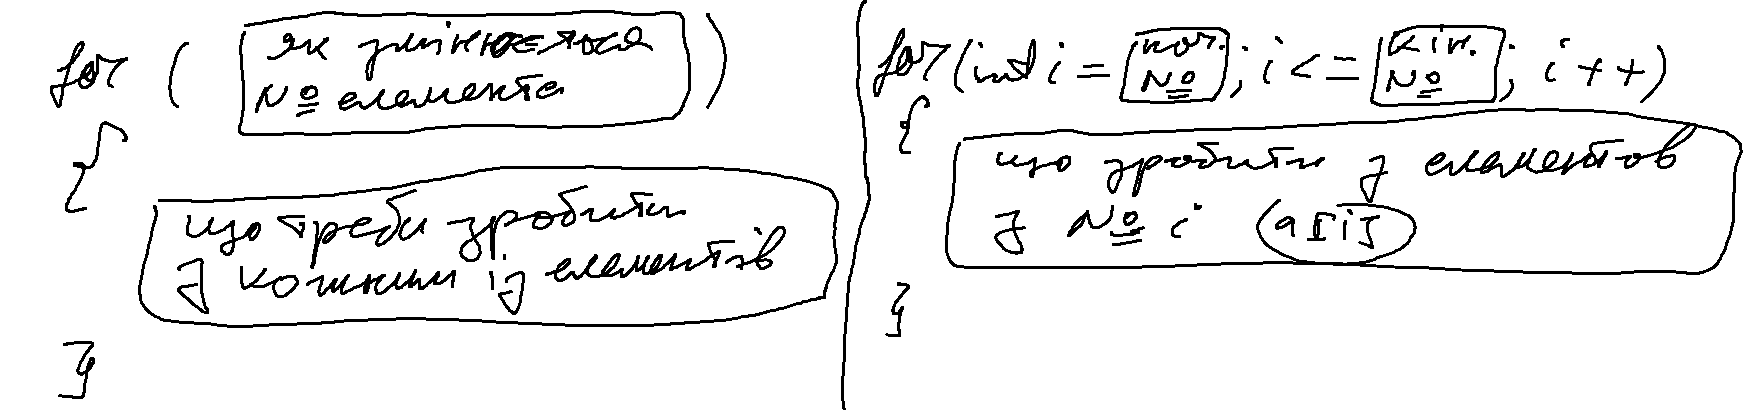 for ( як змінюється
№ елемента )
{
що треба зробити
з кожним із елементів
}
for (int i = поч. № ; i <= кін. № ; i++)
{
що зробити з елементов
з № i (a[i])
}